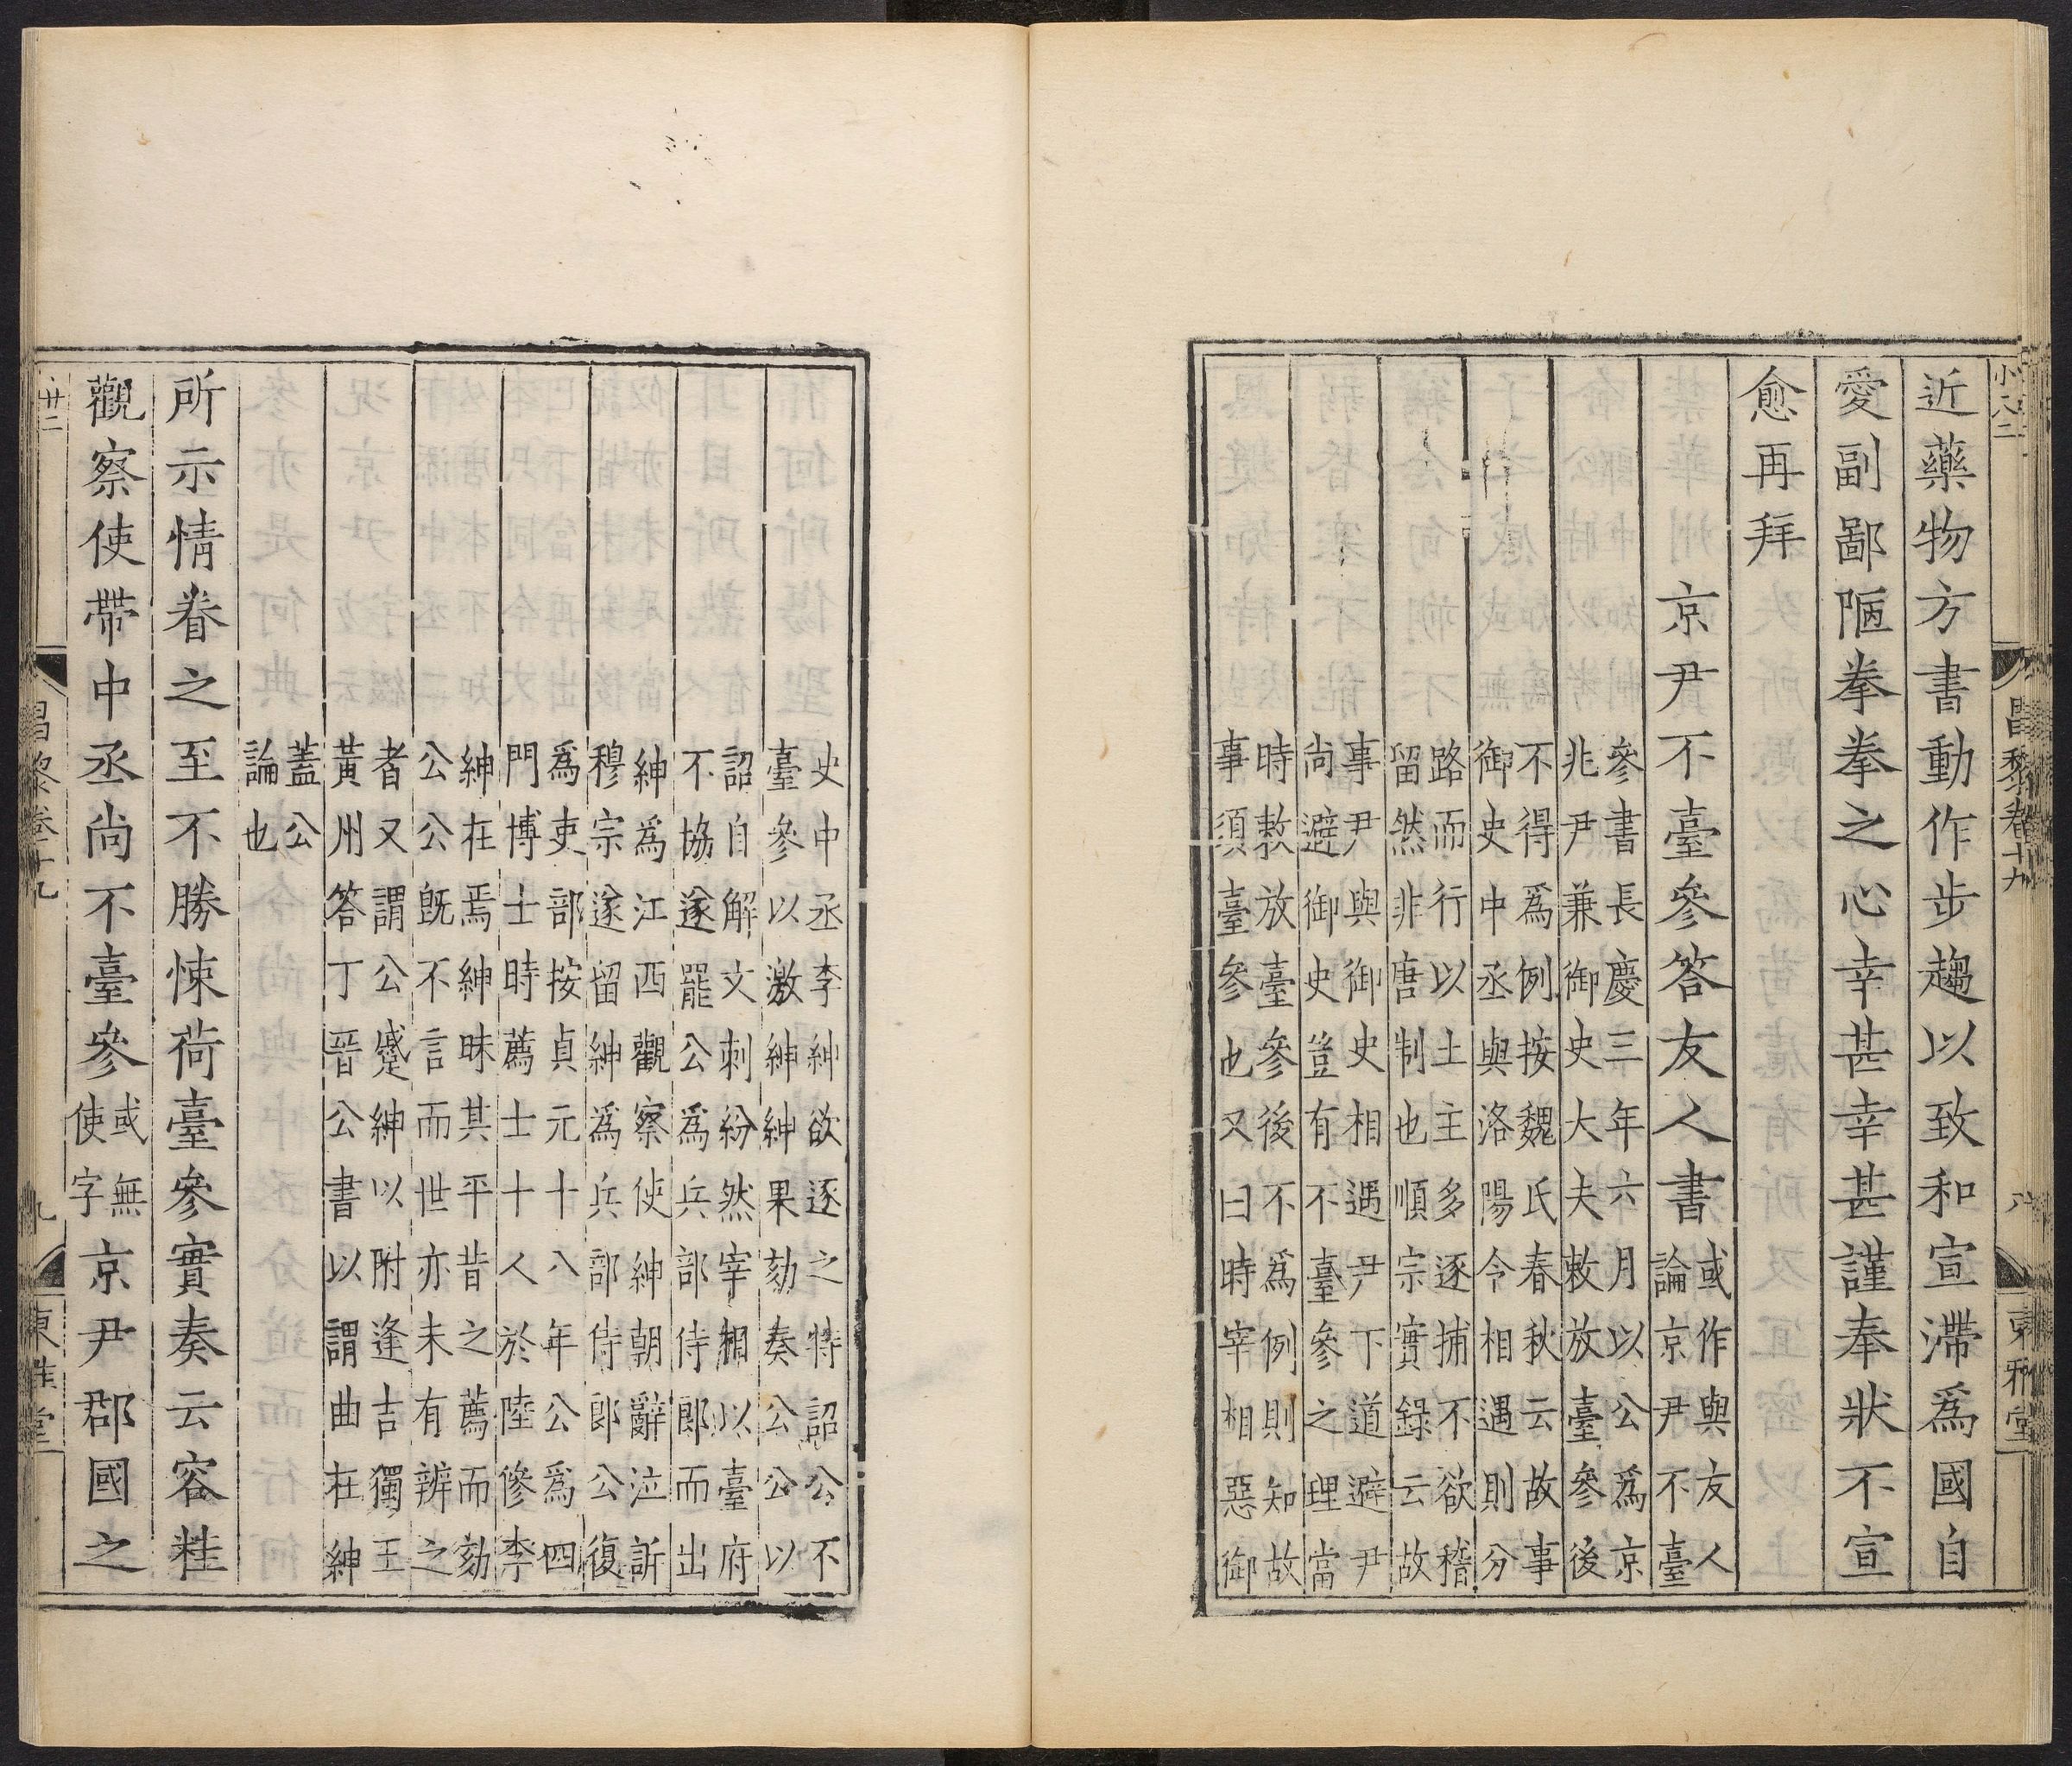 小八二
昌黎卷十九
八
東雅堂
近藥物方書動作步趨以致和宣滯爲國自
愛副鄙陋拳拳之心幸甚幸甚謹奉狀不宣
愈再拜
京尹不臺參答友人書
或作與友人
論京尹不臺
參書長慶三年六月以公爲京
兆尹兼御史大夫敕放臺參後
不得爲例按魏氏春秋云故事
御史中丞與洛陽令相遇則分
路而行以土主多逐捕不欲稽
留然非唐制也順宗實錄云故
事尹與御史相遇尹下道避尹
尚避御史豈有不臺參之理當
時敕放臺參後不爲例則知故
事須臺參也又曰時宰相惡御
史中丞李紳欲逐之特詔公不
臺參以激紳紳果劾奏公公以
詔自解文刺紛然宰相以臺府
不協遂罷公爲兵部侍郎而出
紳爲江西觀察使紳朝辭泣訴
穆宗遂留紳爲兵部侍郎公復
爲吏部按貞元十八年公爲四
門博士時薦士十人於陸傪李
紳在焉紳昧其平昔之薦而劾
公公旣不言而世亦未有辨之
者又謂公蹙紳以附逢吉獨王
黃州答丁晉公書以謂曲在紳
蓋公
論也
所示情眷之至不勝悚荷臺參實奏云容桂
觀察使帶中丞尚不臺參或無使字京尹郡國之
廿二
昌黎卷十九
九
東雅堂